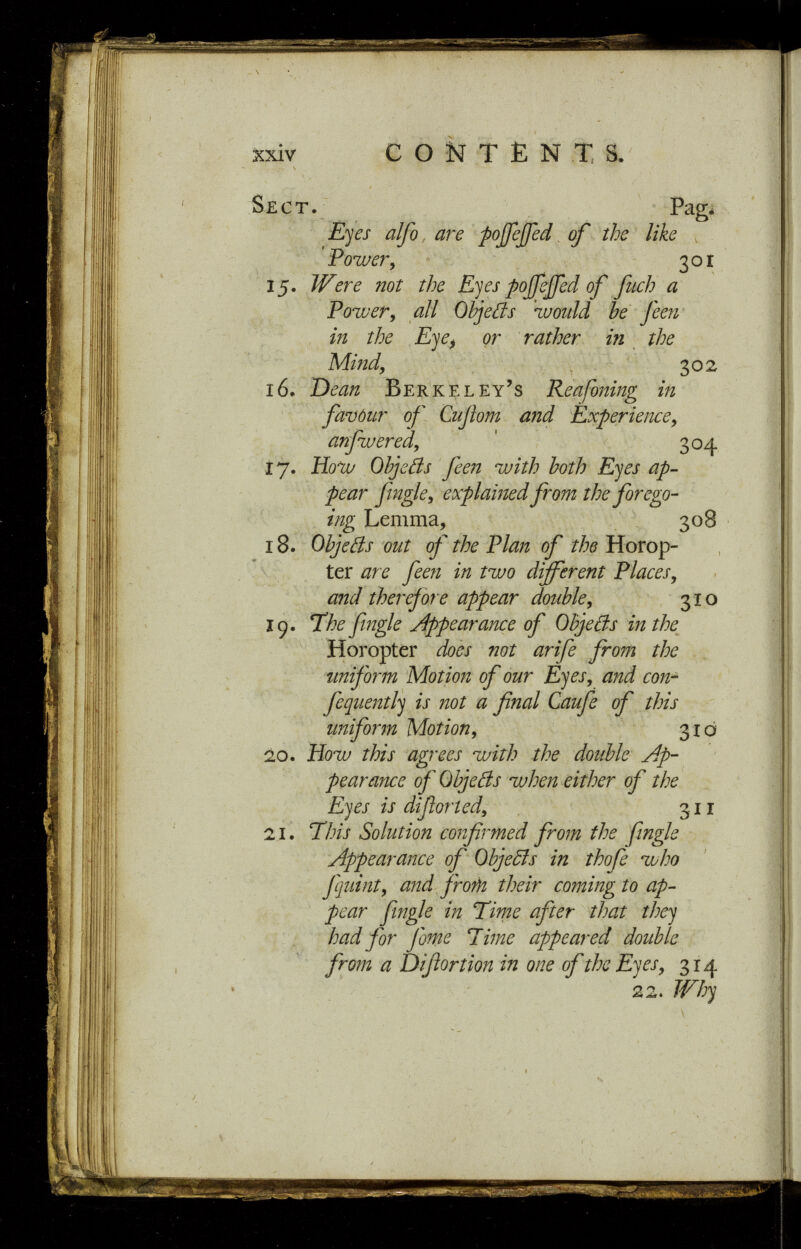 xxiv CONTENTS.
SECT. Pag.
Eyes alſo are poſſeſſed of the like
Power, 301
15. Were not the Eyes poſſeſſed of ſuch a
Power, all Objects would be ſeen
in the Eye, or rather in the
Mind, 302
16. Dean BERKELEY's Reaſoning in
favour of Cuſtom and Experience,
anſwered, 304
17. How Objects ſeen with both Eyes ap-
pear ſingle, explained from the forego-
ing Lemma, 308
18. Objects out of the Plan of the Horop-
ter are ſeen in two different Places,
and therefore appear double, 310
19. The ſingle Appearance of Objects in the
Horopter does not ariſe from the
uniform Motion of our Eyes, and con-
ſequently is not a final Cauſe of this
uniform Motion, 310
20. How this agrees with the double Ap-
pearance of Objects when either of the
Eyes is diſtorted, 311
21. This Solution confirmed from the ſingle
Appearance of Objects in thoſe who
ſquint, and from their coming to ap-
pear ſingle in Time after that they
had for ſome Time appeared double
from a Diſtortion in one of the Eyes, 314
22. Why